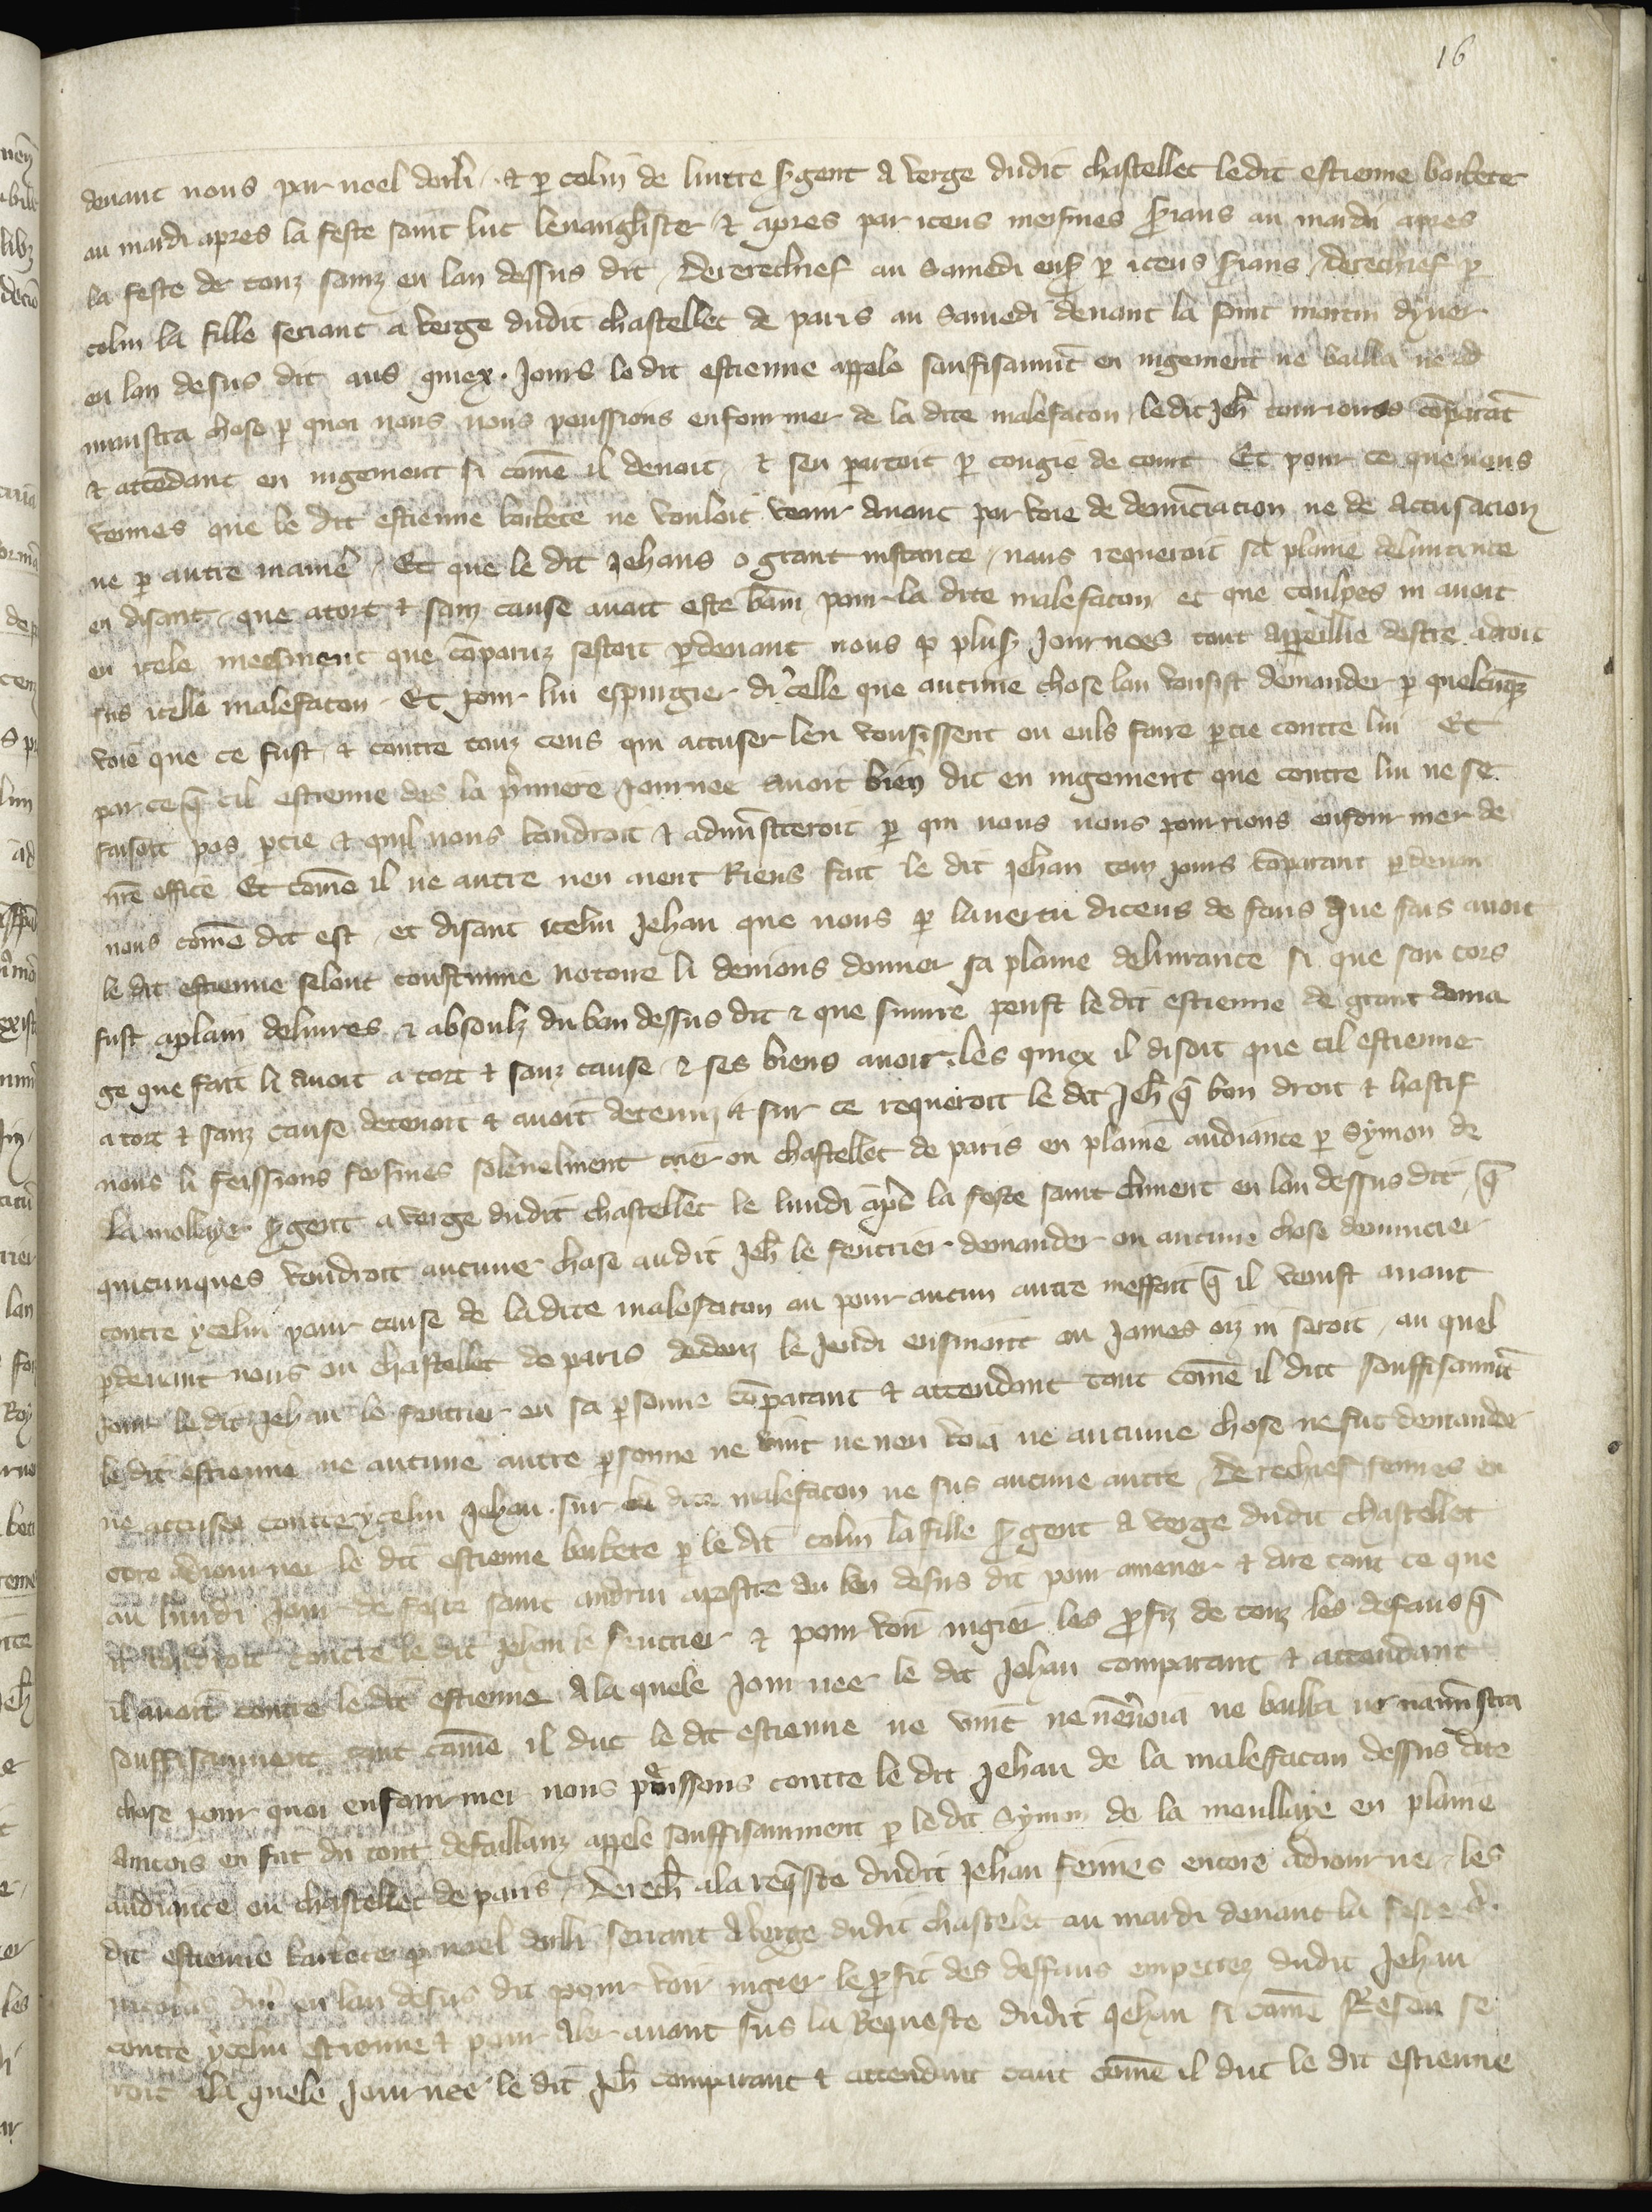 16
devant nous par noel dorli · et p colin de luitre sgent a verge dudit chastellet ledit estienne barbete
au mardi apres la feste saint luc levangliste et apres par iceus meismes sians au mardi apres
la feste de touz sainz en lan dessus dit derrechief au samedi ens p iceus sians derechief p
colin la fille seriant a verge dudit chastellet de paris au samedi devant la saint martin dyver
en lan desus dit aus quiex jours le dit estienne apele souffisanmt en iugement ne bailla ne ad
ministra chose p quoi nous nous peussions enfourmer de la dite malefacon ledit Jeh touriours comparat
et attendant en iugement si come il devoit et sen partoit p congie de court Et pour ce que nous
veimes que le dit estienne barbete ne vouloit venir avant par voie de denunciacion ne de accusacion
ne p autre manie Et que le dit Jehans o grant instance nous requeroit sa plaine delivrance
en disant que a tort et sanz cause avoit este bani pour la dite malefacon et que coulpes ni avoit
en icele meesment que comparuz sestoit pdevant nous p plus journees tout apeillie destre adroit
sus icelle malefacon Et pour lui espurgier dicelle que aucune chose lan vousist demander p quelcuqz
voie que ce fust et contre touz ceus qui accuser len vousissent ou euls faire ptie contre lui Et
par ce q cil estienne des la pmiere journee avoit bien dit en iugement que contre lui ne se
faisoit pas ptie et quil nous baudroit et adminstreroit p qui nous nous pourrions enfourmer de
nre office Et come il ne autre nen aient Riens fait le dit Jehan touz jours comparant pdevant
nous come dit est et disant icelui Jehan que nous p lavertu diceus defaus que fais avoit
le dit estienne selont coustume notoire li devions donner sa plaine delivrance si que son cors
fust aplain delivres et absoulz du ban dessus dit et que suivre peust le dit estienne de grant doma
ge que fait li avoit a tort et sanz cause et ses biens avoir les quiex il disoit que cil estienne
a tort et sanz cause detenoit et avoit detenuz et sur ce requeroit le dit Jeh q bon droit et hastif
nous li feissions feismes solenelment crier ou chastellet de paris en plaine audiance p Symon de
la mollaye sgent a verge dudit chastellet le lundi apres la feste saint climent en lan dessus dit q
quicunques voudroit aucune chose audit Jeh le feutrier demander ou aucune chose denuncier
contre ycelui pour cause de ladite malefacon ou pour aucun autre meffait q il venist avant
pdevant nous ou chastellet de paris dedenz le Jeudi ensivant ou James oiz ni seroit au quel
jour le dit Jehan le feutrier en sa psonne comparant et attendant tant come il dut souffisanmt
le dit estienne ne aucune autre psonne ne vint ne nen voia ne aucune chose ne fut demandee
ne accusee contre ycelui Jehan sur la dite malefacon ne sus aucune autre Derechief feimes en
core adiourner le dit estienne barbete p le dit colin la fille sgent a verge dudit chastellet
au lundi jour de feste saint andriu apostre en lan desus dit pour amener et dire tout ce que
il voudroit contre le dit Jehan le feutrier et pour voir iugier les pfiz de touz les defaus q
il avoit contre le dit estienne A la quele journee le dit Jehan comparant et attendant
souffisanment tant come il dut le dit estienne ne vint ne nenvoia ne bailla ne naministra
chose pour quoi enfourmer nous peussons contre le dit Jehan de la malefacon dessus dite
Ancois en fut du tout defaillanz apele souffisanment p le dit Symon de la moullaye en plaine
audiance ou chastellet de paris Derech a la reqste dudit Jehan feimes encore adiourner les
dit estienne barbete p noel dorli seriant a verge dudit chastelet au mardi devant la feste s
nicolas diver en lan desus dit pour voir iugier le pfit des deffaus empetrez dudit Jehan
contre ycelui estienne et pour aler avant sus la Requeste dudit Jehan si come Reson se
roit A la quele journee le dit Jeh comparant et attendant tant come il dut le dit estienne